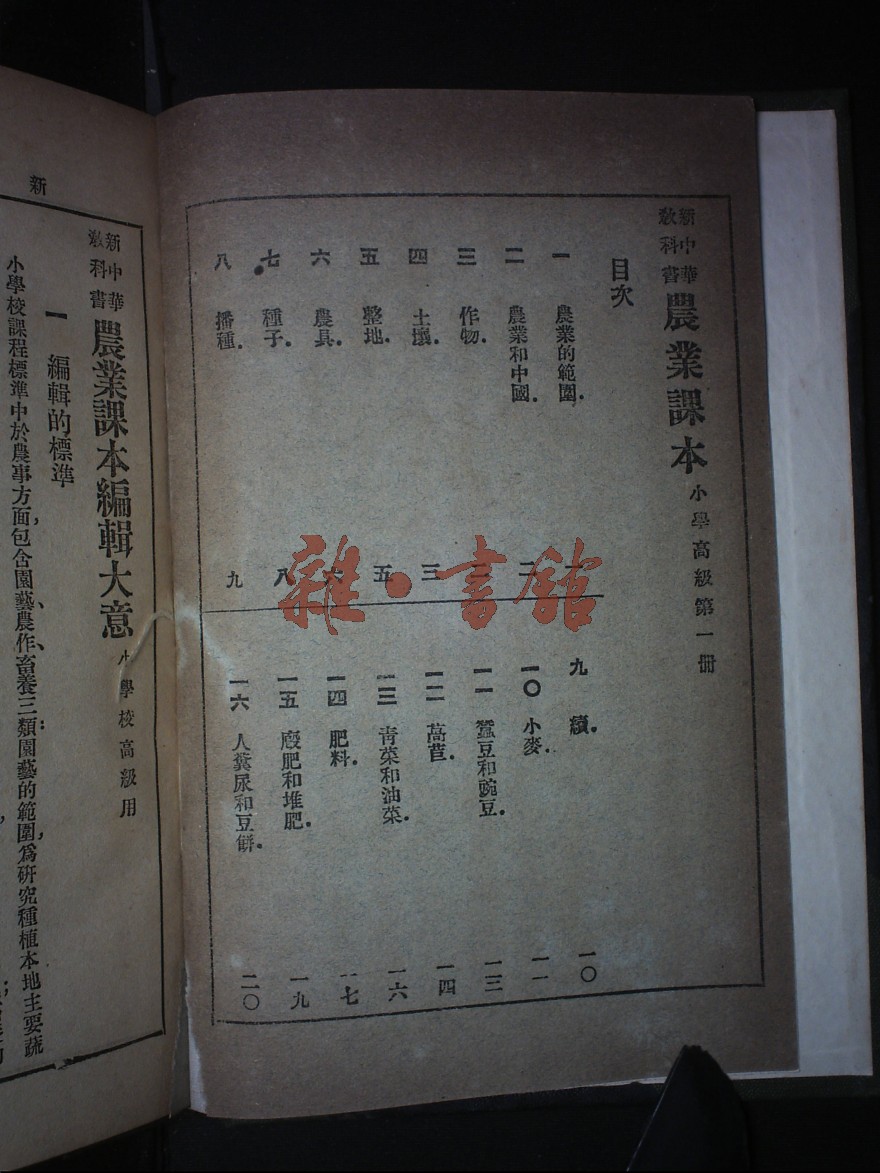 新中華教科書 農業課本 小學高級第一冊
目次
一 農業的範圍. 一
二 農業和中國. 二
三 作物.
四 土壤. 三
五 整地. 五
六 農具. 六
七 種子. 八
八 播種. 九
九 續. 一〇
一〇 小麥. 一一
一一 蠶豆和豌豆. 一三
一二 萵苣. 一四
一三 青菜和油菜. 一六
一四 肥料. 一七
一五 廄肥和堆肥. 一九
一六 人糞尿和豆餅. 二〇
雜·書館
新
新中華教科書 農業課本編輯大意 小學校高級用
一 編輯的標準
小學校課程標準中於農事方面,包含園藝、農作、畜養三類:園藝的範圍,爲研究種植本地主要蔬